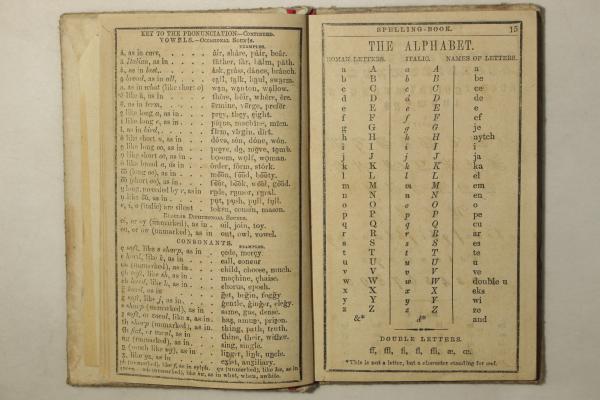 KEY TO THE PRONUNCIATION—CONTINUED.
VOWELS.—OCCASIONAL SOUNDS.
EXAMPLES.
â, as in care, âir, shâre, pâir, beâr.
ä Italian, as in fäther, fär, bälm, päth.
ȧ, as in last, ȧsk, grȧss, dȧnce, brȧnch.
a̤ broad, as in all, ca̤ll, ta̤lk, ha̤ul, swa̤rm.
ạ, as in what (like short o) wạn, wạnton, wạllow.
ê like â, as in thêre, hêir, whêre, êre.
ẽ, as in term, ẽrmine, vẽrge, prefẽr
e̱ like long a, as in pre̱y, the̱y, eight.
ï like long e, as in pïque, machïne,
ĩ, as in bird, fĩrm, vĩrgin, dĩrt.
ȯ like short u, as in dȯve, sȯn, dȯne, wȯn.
o̤ like long oo, as in pro̤ve, do̤, mo̤ve, to̤mb.
ọ like short oo, as in bọsom, wọlf, wọman.
ô like broad a, as in ôrder, fôrm, stôrk.
o͞o (long oo), as in mo͞on, fo͞od, bo͞oty.
o͝o (short oo), as in fo͝ot, bo͝ok, wo͝ol, go͝od.
ṳ long, preceded by r, as in rṳde, rṳmor, rṳral.
ụ like o͝o, as in pụt, pụsh, pụll, fụll.
e, i, o (italic) are silent token, cousin, mason.
REGULAR DIPHTHONGAL SOUNDS.
oi, or oy (unmarked), as in oil, join, toy.
ou, or ow (unmarked), as in out, owl, vowel.
CONSONANTS.
EXAMPLES.
ç soft, like s sharp, as in çede, merçy
c hard, like k, as in call, concur
ch (unmarked), as in child, choose, much.
çh soft, like sh, as in maçhine, çhaise.
ch hard, like k, as in chorus, epoch.
g hard, as in get, begin, foggy
g soft, like j, as in gentle, ginger, elegy.
s sharp (unmarked), as in same, gus, dense.
s soft, or vocal, like z, as in has, amuse, prison.
th sharp (unmarked), as in thing, path, truth.
th flat, or vocal, as in thine, their, wither.
ng (unmarked), as in sing, single.
n (much like ng), as in linger, link, uncle.
x, like gz, as in exist, auxiliary.
ph (unmarked), like f, as in sylph. qu (unmarked), like kw, as in
wh (unmarked), like hw, as in what, when, awhile.
SPELLING-BOOK. 15
THE ALPHABET.
ROMAN LETTERS. ITALIC. NAMES OF LETTERS.
a A a A a
b B b B be
c C c C ce
d D d D de
e E e E e
f F f F ef
g G g G je
h H h H aytch
i I i I i
j J j J ja
k K k K ka
l L l L el
m M m M em
n N n N en
o O o O o
p P p P pe
q Q q Q cu
r R r R ar
s S s S es
t T t T te
u U u U u
v V v V ve
w W w W double u
x X x X eks
y Y y Y wi
z Z z Z ze
&* &* and
DOUBLE LETTERS.
ff, ffl, fi, fl, ffi, æ, œ.
*This is not a letter, but a character standing for and.